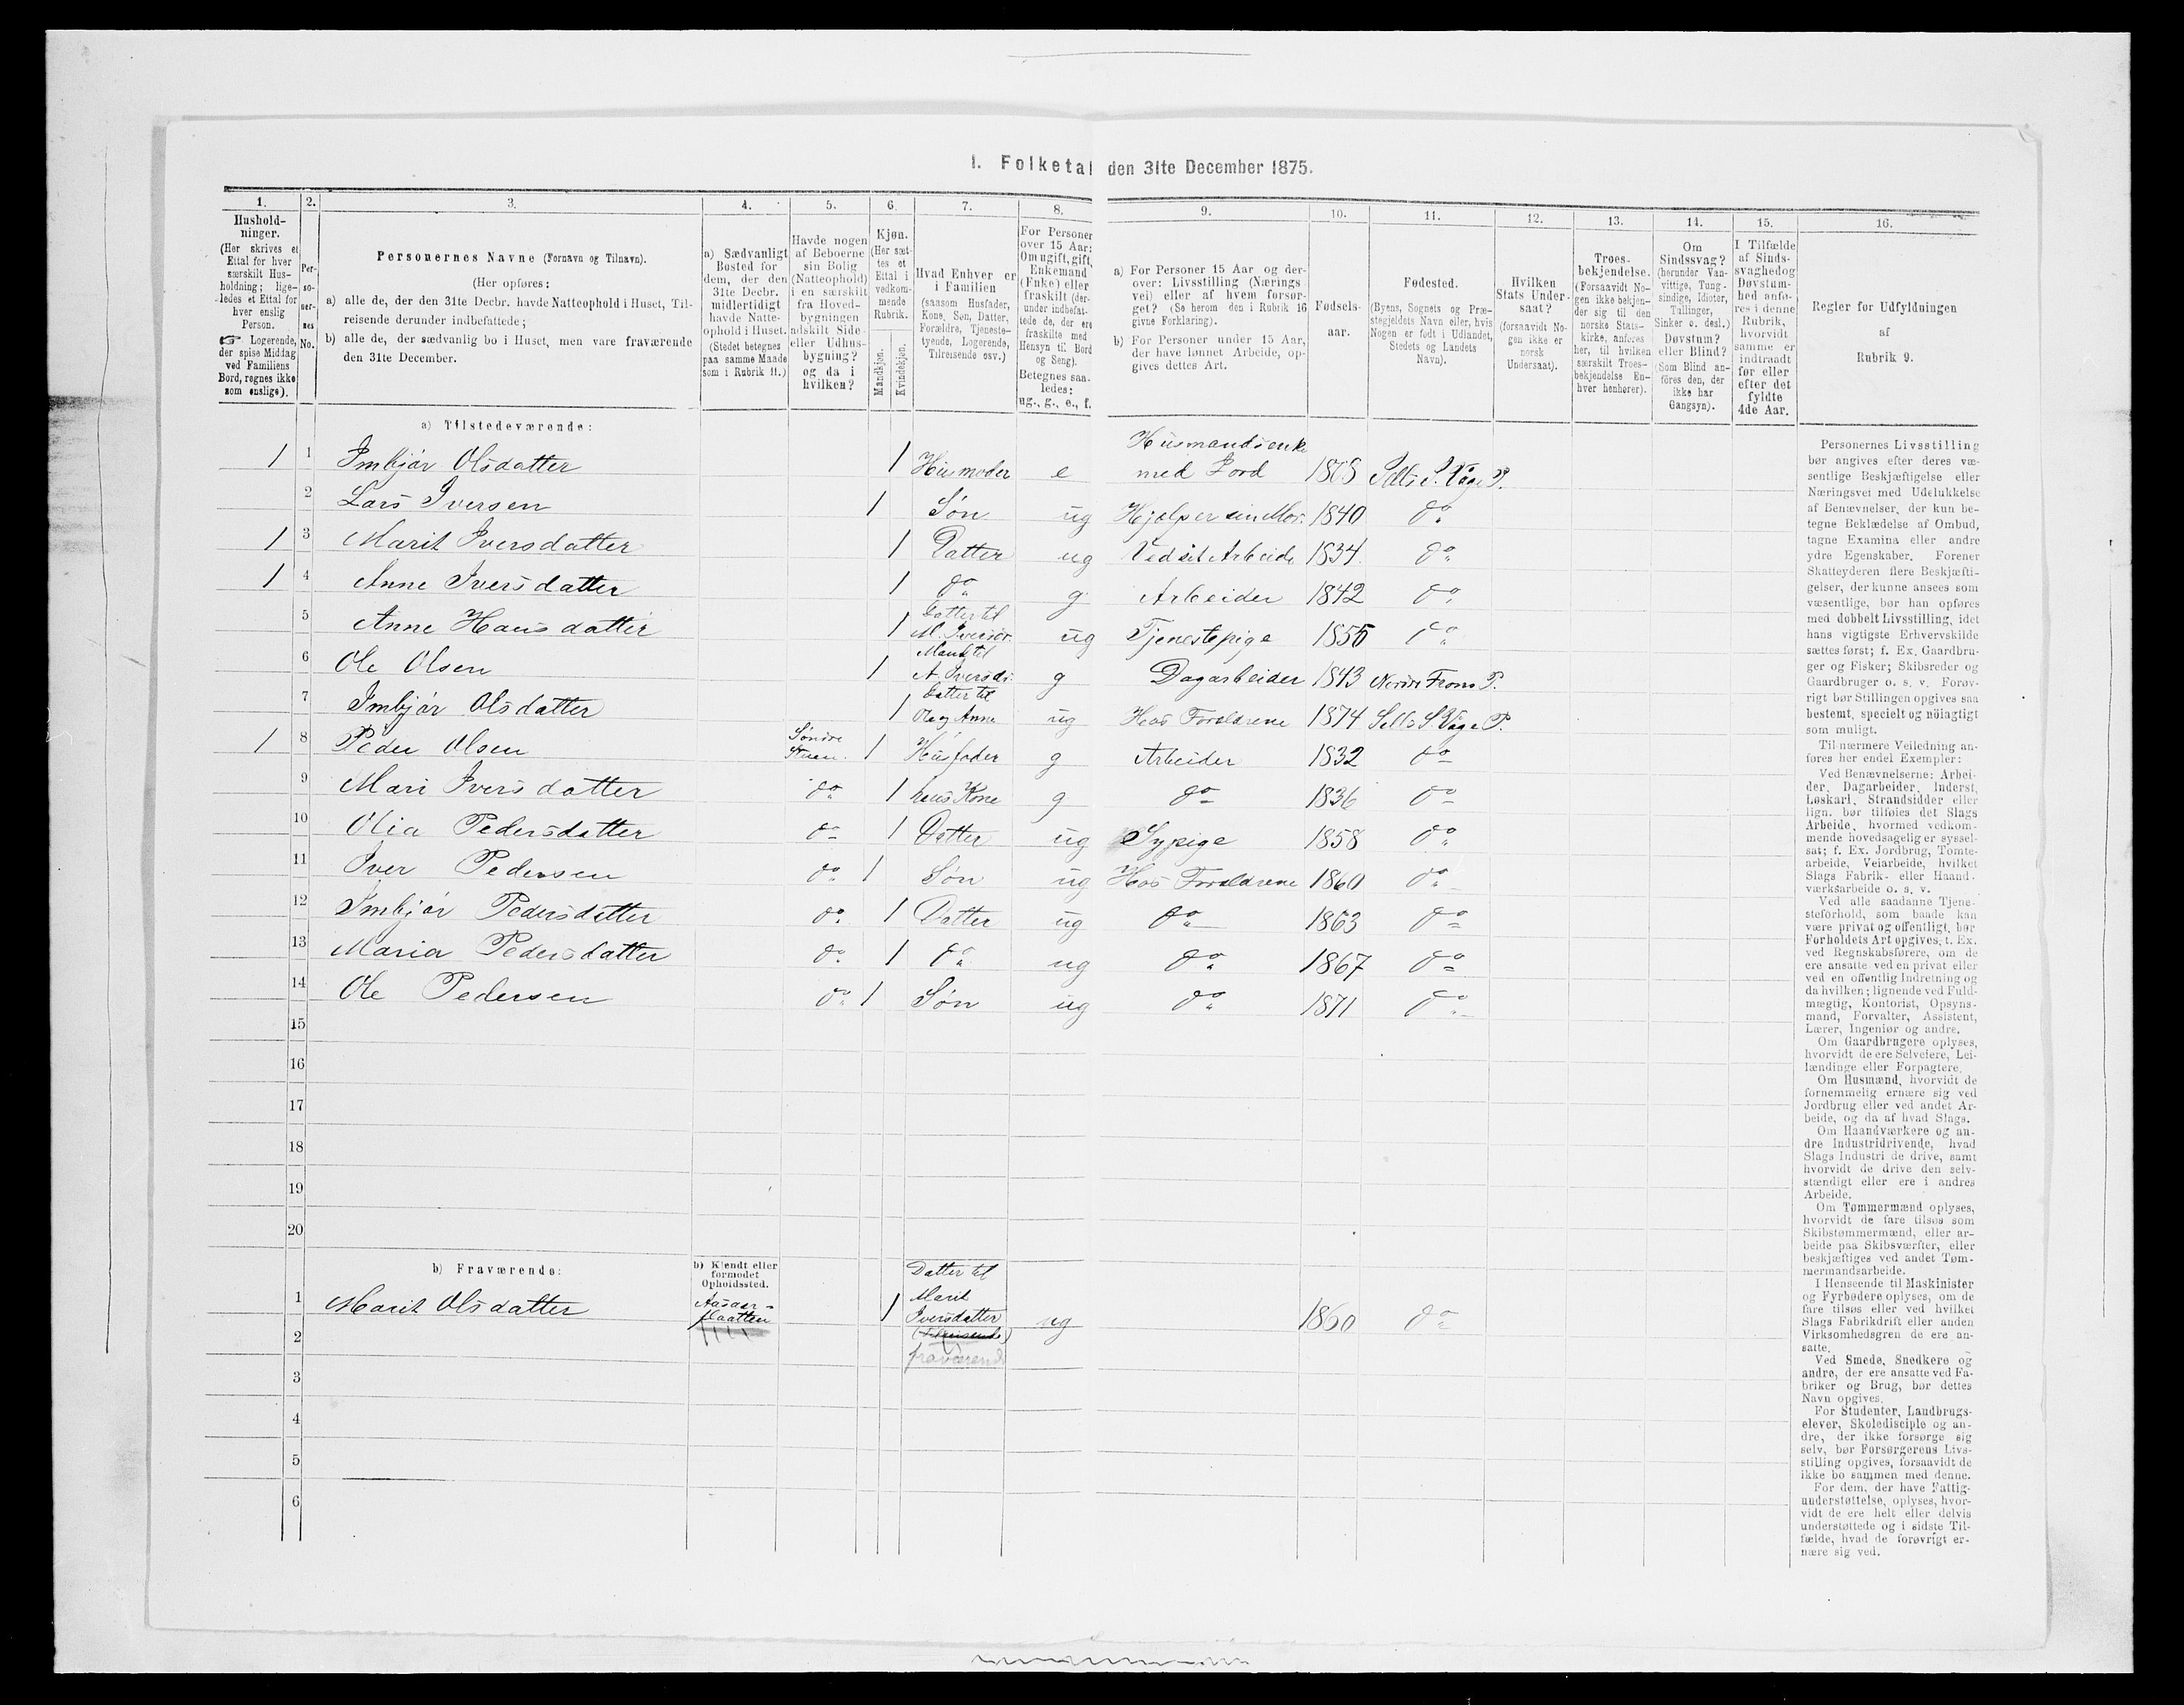 1. Folketal den 31te December 1875.
1. 2. 3. 4. 5. 6. 7. 8. 9. 10. 11. 12. 13. 14. 15. 16.
Hushold-
ninger.
(Her skrives et
Ettal for hver
særskilt Hus-
holdning; lige-
ledes et Ettal for
hver enslig
Person.
☞ Logerende,
der spise Middag
ved Familiens
Bord, regnes ikke
som enslige).
Per-
so-
ner-
nes
No.
Personernes Navne (Fornavn og Tilnavn).
(Her opføres:
a) alle de, der den 31te Decbr. havde Natteophold i Huset, Til-
reisende derunder indbefattede;
b) alle de, der sædvanlig bo i Huset, men vare fraværende
den 31te December.
a) Sædvanligt
Bosted for
dem, der den
31te Decbr.
midlertidigt
havde Natte-
ophold i Huset.
(Stedet betegnes
paa samme Maade
som i Rubrik 11.)
Havde nogen
af Beboerne
sin Bolig
(Natteophold)
i en særskilt
fra Hoved-
bygningen
adskilt Side-
eller Udhus-
bygning?
og da i
hvilken?
Kjøn.
(Her sæt-
tes et
Ettal i
vedkom-
mende
Rubrik.
Mandkjøn.
Kvindekjøn.
Hvad Enhver er
i Familien
(saasom Husfader,
Kone, Søn, Datter,
Forældre, Tjeneste-
tyende, Logerende,
Tilreisende osv.)
For Personer
over 15 Aar:
Om ugift, gift,
Enkemand
(Enke) eller
fraskilt (der-
under indbefat-
tede de, der ere
fraskilte med
Hensyn til Bord
og Seng).
Betegnes saa-
ledes:
ug., g., e., f.
a) For Personer 15 Aar og der-
over: Livsstilling (Nærings
vei) eller af hvem forsør-
get? (Se herom den i Rubrik 16
givne Forklaring).
b) For Personer under 15 Aar,
der have lønnet Arbeide, op-
gives dettes Art.
Fødsels-
aar.
Fødested.
(Byens, Sognets og Præ-
stegjeldets Navn eller, hvis
Nogen er født i Udlandet,
Stedets og Landets
Navn).
Hvilken
Stats Under-
saat?
(forsaavidt No-
gen ikke er
norsk
Undersaat).
Troes-
bekjendelse.
(Forsaavidt No-
gen ikke bekjen-
der sig til den
norske Stats-
kirke, anføres
her, til hvilken
særskilt Troes-
bekjendelse En-
hver henhører).
Om
Sindssvag?
(herunder Van-
vittige, Tung-
sindige, Idioter,
Tullinger,
Sinker o. desl.)
Døvstum?
eller Blind?
(Som Blind an-
føres den, der
ikke har
Gangsyn).
I Tilfælde
af Sinds-
svaghed og
Døvstum-
hed anfø-
res i denne
Rubrik,
hvorvidt
samme er
indtraadt
før eller
efter det
fyldte
4de Aar.
Regler for Udfyldningen
af
Rubrik 9.
a) Tilstedeværende:
1 1 Imbjør Olsdatter 1 Husmoder e Husmandsenke
med Jord 1808 Sells S. Vage P.
2 Lars Iversen 1 Søn ug Hjælper sin Mor. 1840 do
1 3 Marit Iversdatter 1 Datter ug Ved sit Arbeide 1834 do
1 4 Anne Iversdatter 1 do g Arbeider 1842 do
5 Anne Hansdatter 1 Datter til
M. Iversdr. ug Tjenestepige 1855 do
6 Ole Olsen 1 Mand til
A. Iversd. g Dagarbeider 1843 Nordre Frons P.
7 Imbjør Olsdatter 1 Datter til
Ole og Anne ug Hos Forældrene 1874 Sells S. Vage P.
1 8 Peder Olsen Søndre
Stuen. 1 Husfader g Arbeider 1832 do
9 Mari Iversdatter do 1 hans Kone g do 1836 do
10 Olia Pedersdatter do 1 Datter ug Sypige 1858 do
11 Iver Pedersen do 1 Søn ug Hos Forældrene 1860 do
12 Imbjør Pedersdatter do 1 Datter ug do 1863 do
13 Maria Pedersdatter do 1 do ug do 1867 do
14 Ole Pedersen do 1 Søn ug do 1871 do
15
16
17
18
19
20
b) Fraværende:
b) Kjendt eller
formodet
Opholdssted.
1 Marit Olsdatter 1 Datter til
Marit
Iversdatter
fraværende ug 1860 do
2
3
4
5
6
Personernes Livsstilling
bør angives efter deres væ-
sentlige Beskjæftigelse eller
Næringsvei med Udelukkelse
af Benævnelser, der kun be-
tegne Beklædelse af Ombud,
tagne Examina eller andre
ydre Egenskaber. Forener
Skatteyderen flere Beskjæfti-
gelser, der kunne ansees som
væsentlige, bør han opføres
med dobbelt Livsstilling, idet
hans vigtigste Erhvervskilde
sættes først; f. Ex. Gaardbru-
ger og Fisker; Skibsreder og
Gaardbruger o. s. v. Forøv-
rigt bør Stillingen opgives saa
bestemt, specielt og nøiagtigt
som muligt.
Til nærmere Veiledning an-
føres her endel Exempler:
Ved Benævnelserne: Arbei-
der, Dagarbeider, Inderst,
Løskarl, Strandsidder eller
lign. bør tilføies det Slags
Arbeide, hvormed vedkom-
mende hovedsagelig er syssel-
sat; f. Ex. Jordbrug, Tomte-
arbeide, Veiarbeide, hvilket
Slags Fabrik- eller Haand-
værksarbeide o. s. v.
Ved alle saadanne Tjene-
steforhold, som baade kan
være privat og offentligt, bør
Forholdets Art opgives; t. Ex.
ved Regnskabsførere, om de
ere ansatte ved en privat eller
ved en offentlig Indretning og
da hvilken; lignende ved Fuld-
mægtig, Kontorist, Opsyns-
mand, Forvalter, Assistent,
Lærer, Ingeniør og andre.
Om Gaardbrugere oplyses,
hvorvidt de ere Selveiere, Lei-
lændinge eller Forpagtere.
Om Husmænd, hvorvidt de
fornemmelig ernære sig ved
Jordbrug eller ved andet Ar-
beide, og da af hvad Slags.
Om Haandværkere og an-
dre Industridrivende, hvad
Slags Industri de drive, samt
hvorvidt de drive den selv-
stændigt eller ere i andres
Arbeide.
Om Tømmermænd oplyses,
hvorvidt de fare tilsøs som
Skibstømmermænd, eller ar-
beide paa Skibsværfter, eller
beskjæftiges ved andet Tøm-
mermandsarbeide.
I Henseende til Maskinister
og Fyrbødere oplyses, om de
fare tilsøs eller ved hvilket
Slags Fabrikdrift eller anden
Virksomhedsgren de ere an-
satte.
Ved Smede, Snedkere og
andre, der ere ansatte ved Fa-
briker og Brug, bør dettes
Navn opgives.
For Studenter, Landbrugs-
elever, Skoledisciple og an-
dre, der ikke forsørge sig
selv, bør Forsørgerens Livs-
stilling opgives, forsaavidt de
ikke bo sammen med denne.
For dem, der have Fattig-
understøttelse, oplyses, hvor-
vidt de ere helt eller delvis
understøttede og i sidste Til-
fælde, hvad de forøvrigt er-
nære sig ved.